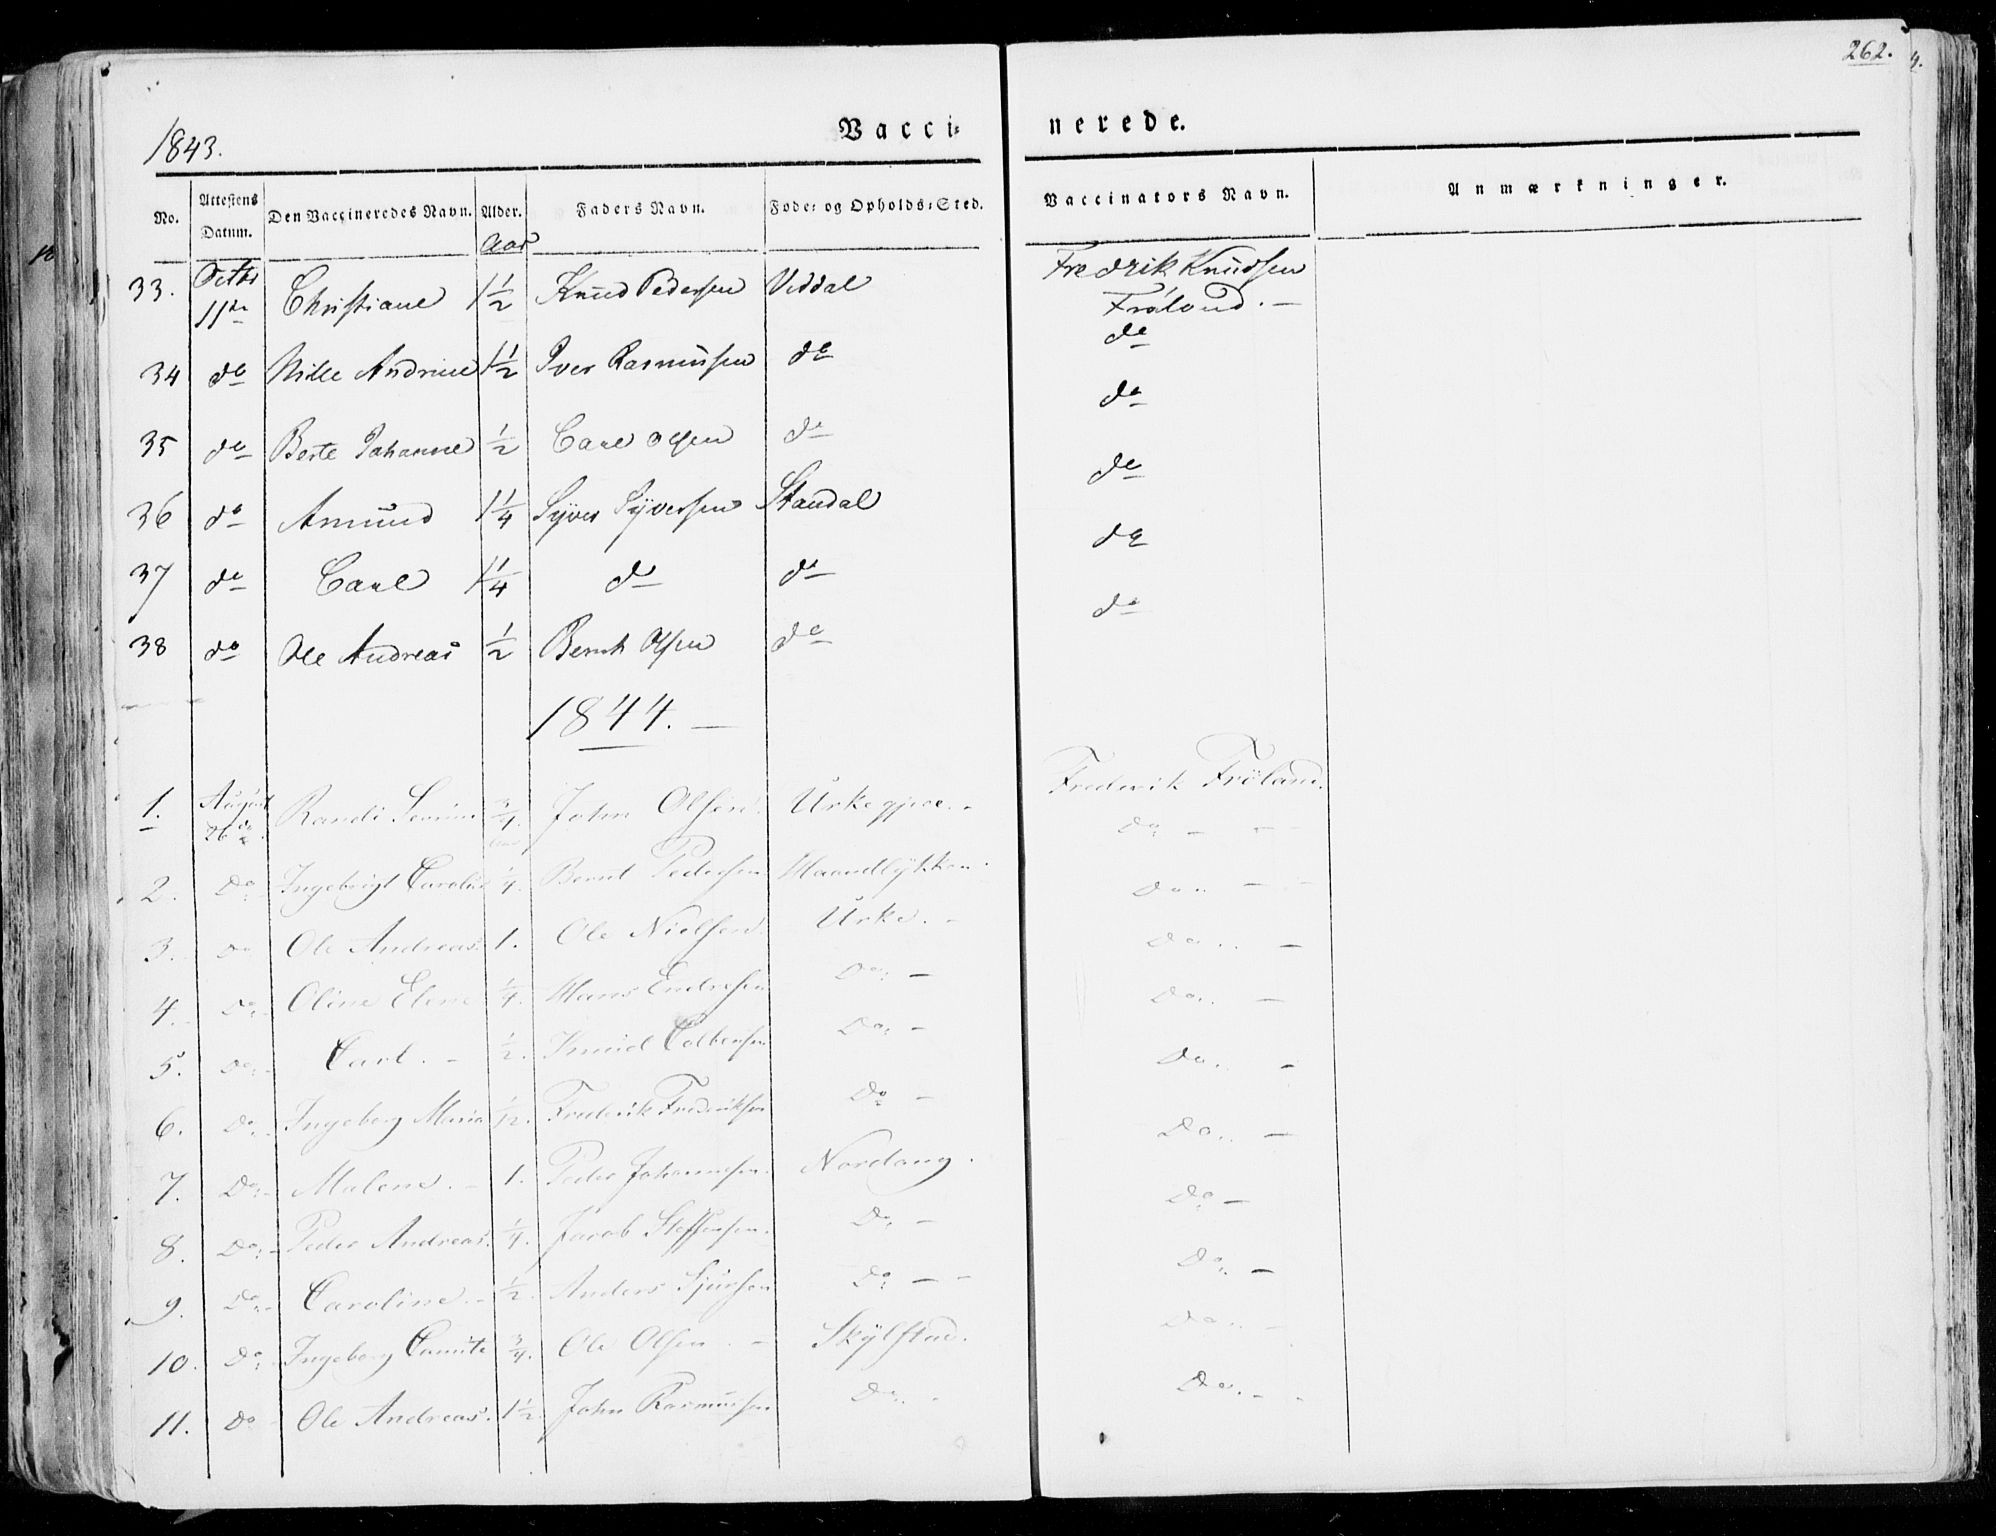 262.
1843.
Vacci-nerede.
No. Attestens Datum. Den Vaccineredes Navn. Alder. Faders Navn. Føde- og Opholds-Sted. Vaccinators Navn. Anmærkninger.
Aar
33. Octbr 11te Christiane 1 1/2 Knud Pedersen Viddal Fredrik Knudsen Frøland. —
34 do Nille Andrine 1 1/2 Iver Rasmussen do do
35 do Berte Johanne 1/2 Carl Olsen do do
36 do Amund 1 1/4 Syver Syversen Standal do
37 do Carl 1 1/4 do do do
38 do Ole Andreas 1/2 Bernt Olsen do do
1844. —
1. August 26de Randi 3/4 John Olsen Urkegjere. - Frederik Frøland.
2. Do Ingeborgt 1/4. Bernt Pedersen Maandlykken. Do — -
3. Do Ole Andreas. 1. Ole Nielsen. Urke. - Do.. —
4. Do Oline Elene 1/4. Hans Endresen Do: — Do.. —
5. Do: Carl. - 1/2. Knud Do: — Do.. —
6. Do: Ingeborg Maria 1/2. Frederik Frederiksen Do — Do.. —
7. Do: Malene. - 1. Peder Johannesen. Nordang. Do.. —
8. Do: Peder Andreas. 1/4. Jacob Steffensen. Do: — Do —
9. Do: Caroline. - 1/2. Anders Sjursen Do: — - Do.. —
10. Do: Ingeborg 3/4. Ole Olsen. — Skylstad. Do.. —
11. Do Ole Andreas. 1 1/2. John Rasmussen Do.. - Do. - -